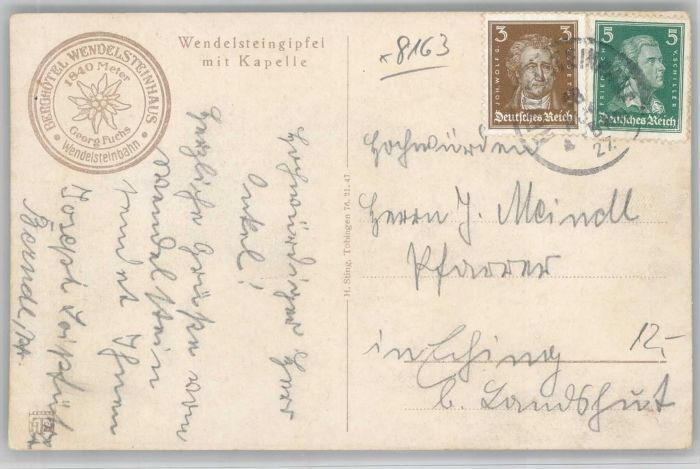 BERGHOTEL WENDELSTEINHAUS
1840 Meter
Georg Fuchs
Wendelsteinbahn
Wendelsteingipfel
mit Kapelle
8163
3 3
JOH. WOLFG. GOETHE
Deutsches Reich
5 5
FRIEDR. V. SCHILLER
Deutsches Reich
27.
Hochwürdiger Herr
Onkel!
Herzliche Grüße vom
Wendelstein
sendet Ihnen
Joseph
H. Sting, Tübingen 76. 21. 47
Hochwürden
Herrn J. Meindl
Pfarrer
in Eching
b. Landshut
12,-